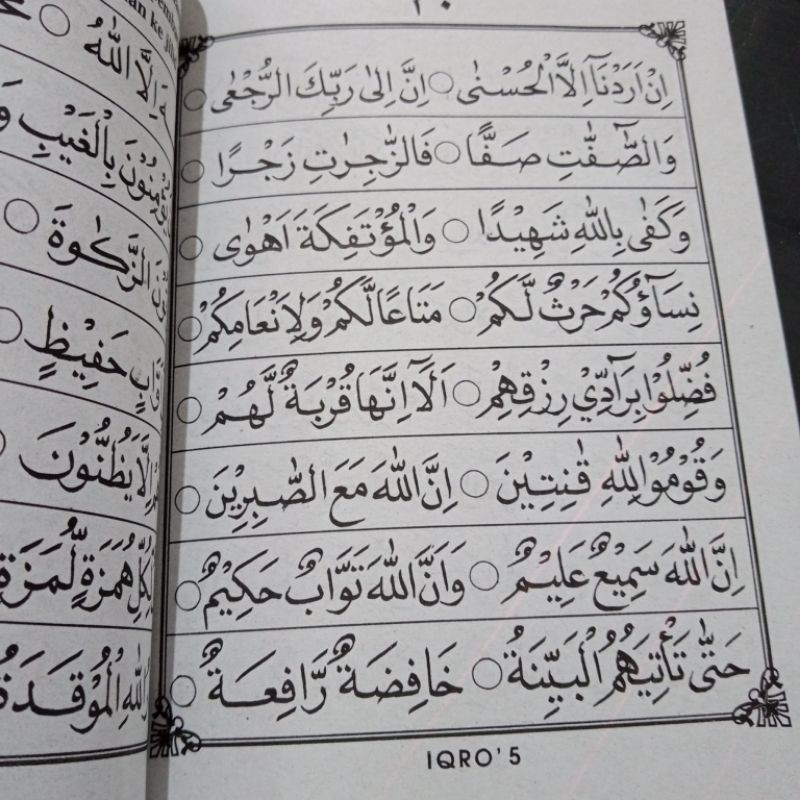 اِنْ اَرَدْنَآ اِلَّا الْحُسْنٰى ○ اِنَّ اِلٰى رَبِّكَ الرُّجْعٰى ○
وَالصّٰٓفّٰتِ صَفًّا ○ فَالزّٰجِرٰتِ زَجْرًا ○
وَكَفٰى بِاللّٰهِ شَهِيْدًا ○ وَالْمُؤْتَفِكَةَ اَهْوٰى ○
نِسَآؤُكُمْ حَرْثٌ لَّكُمْ ○ مَتَاعًا لَّكُمْ وَلِاَنْعَامِكُمْ ○
فُضِّلُوْا بِرَآدِّيْ رِزْقِهِمْ ○ اَلَآ اِنَّهَا قُرْبَةٌ لَّهُمْ ○
وَقُوْمُوْا لِلّٰهِ قٰنِتِيْنَ ○ اِنَّ اللّٰهَ مَعَ الصّٰبِرِيْنَ ○
اِنَّ اللّٰهَ سَمِيْعٌ عَلِيْمٌ ○ وَاَنَّ اللّٰهَ تَوَّابٌ حَكِيْمٌ ○
حَتّٰى تَأْتِيَهُمُ الْبَيِّنَةُ ○ خَافِضَةٌ رَّافِعَةٌ ○
IQRO'5
اِلَّا اللّٰهُ ○
بِالْغَيْبِ
الزَّكٰوةَ ○
حَفِيْظٍ ○
يَظُنُّوْنَ
هُمَزَةٍ لُّمَزَةٍ
اللّٰهِ الْمُوْقَدَةُ